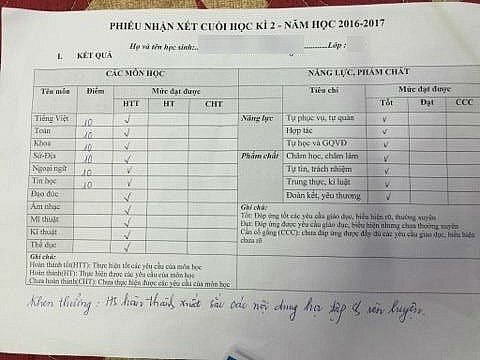 PHIẾU NHẬN XÉT CUỐI HỌC KÌ 2 - NĂM HỌC 2016-2017
Họ và tên học sinh: Lớp :
I. KẾT QUẢ
CÁC MÔN HỌC
Tên môn Điểm Mức đạt được
HTT HT CHT
Tiếng Việt 10 ✓
Toán 10 ✓
Khoa 10 ✓
Sử-Địa 10 ✓
Ngoại ngữ 10 ✓
Tin học 10 ✓
Đạo đức ✓
Âm nhạc ✓
Mĩ thuật ✓
Kĩ thuật ✓
Thể dục ✓
Ghi chú:
Hoàn thành tốt(HTT): Thực hiện tốt các yêu cầu của môn học
Hoàn thành(HT): Thực hiện được các yêu cầu của môn học
Chưa hoàn thành(CHT): Chưa thực hiện được các yêu cầu của môn học
NĂNG LỰC, PHẨM CHẤT
Tiêu chí Mức đạt được
Tốt Đạt CCC
Năng lực Tự phục vụ, tự quản ✓
Hợp tác ✓
Tự học và GQVĐ ✓
Phẩm chất Chăm học, chăm làm ✓
Tự tin, trách nhiệm ✓
Trung thực, kỉ luật ✓
Đoàn kết, yêu thương ✓
Ghi chú:
Tốt: Đáp ứng tốt các yêu cầu giáo dục, biểu hiện rõ, thường xuyên
Đạt: Đáp ứng được yêu cầu giáo dục, biểu hiện nhưng chưa thường xuyên
Cần cố gắng (CCC): chưa đáp ứng được đầy đủ các yêu cầu giáo dục, biểu hiện
chưa rõ
Khen thưởng : HS hoàn thành xuất sắc các nội dung học tập và rèn luyện.